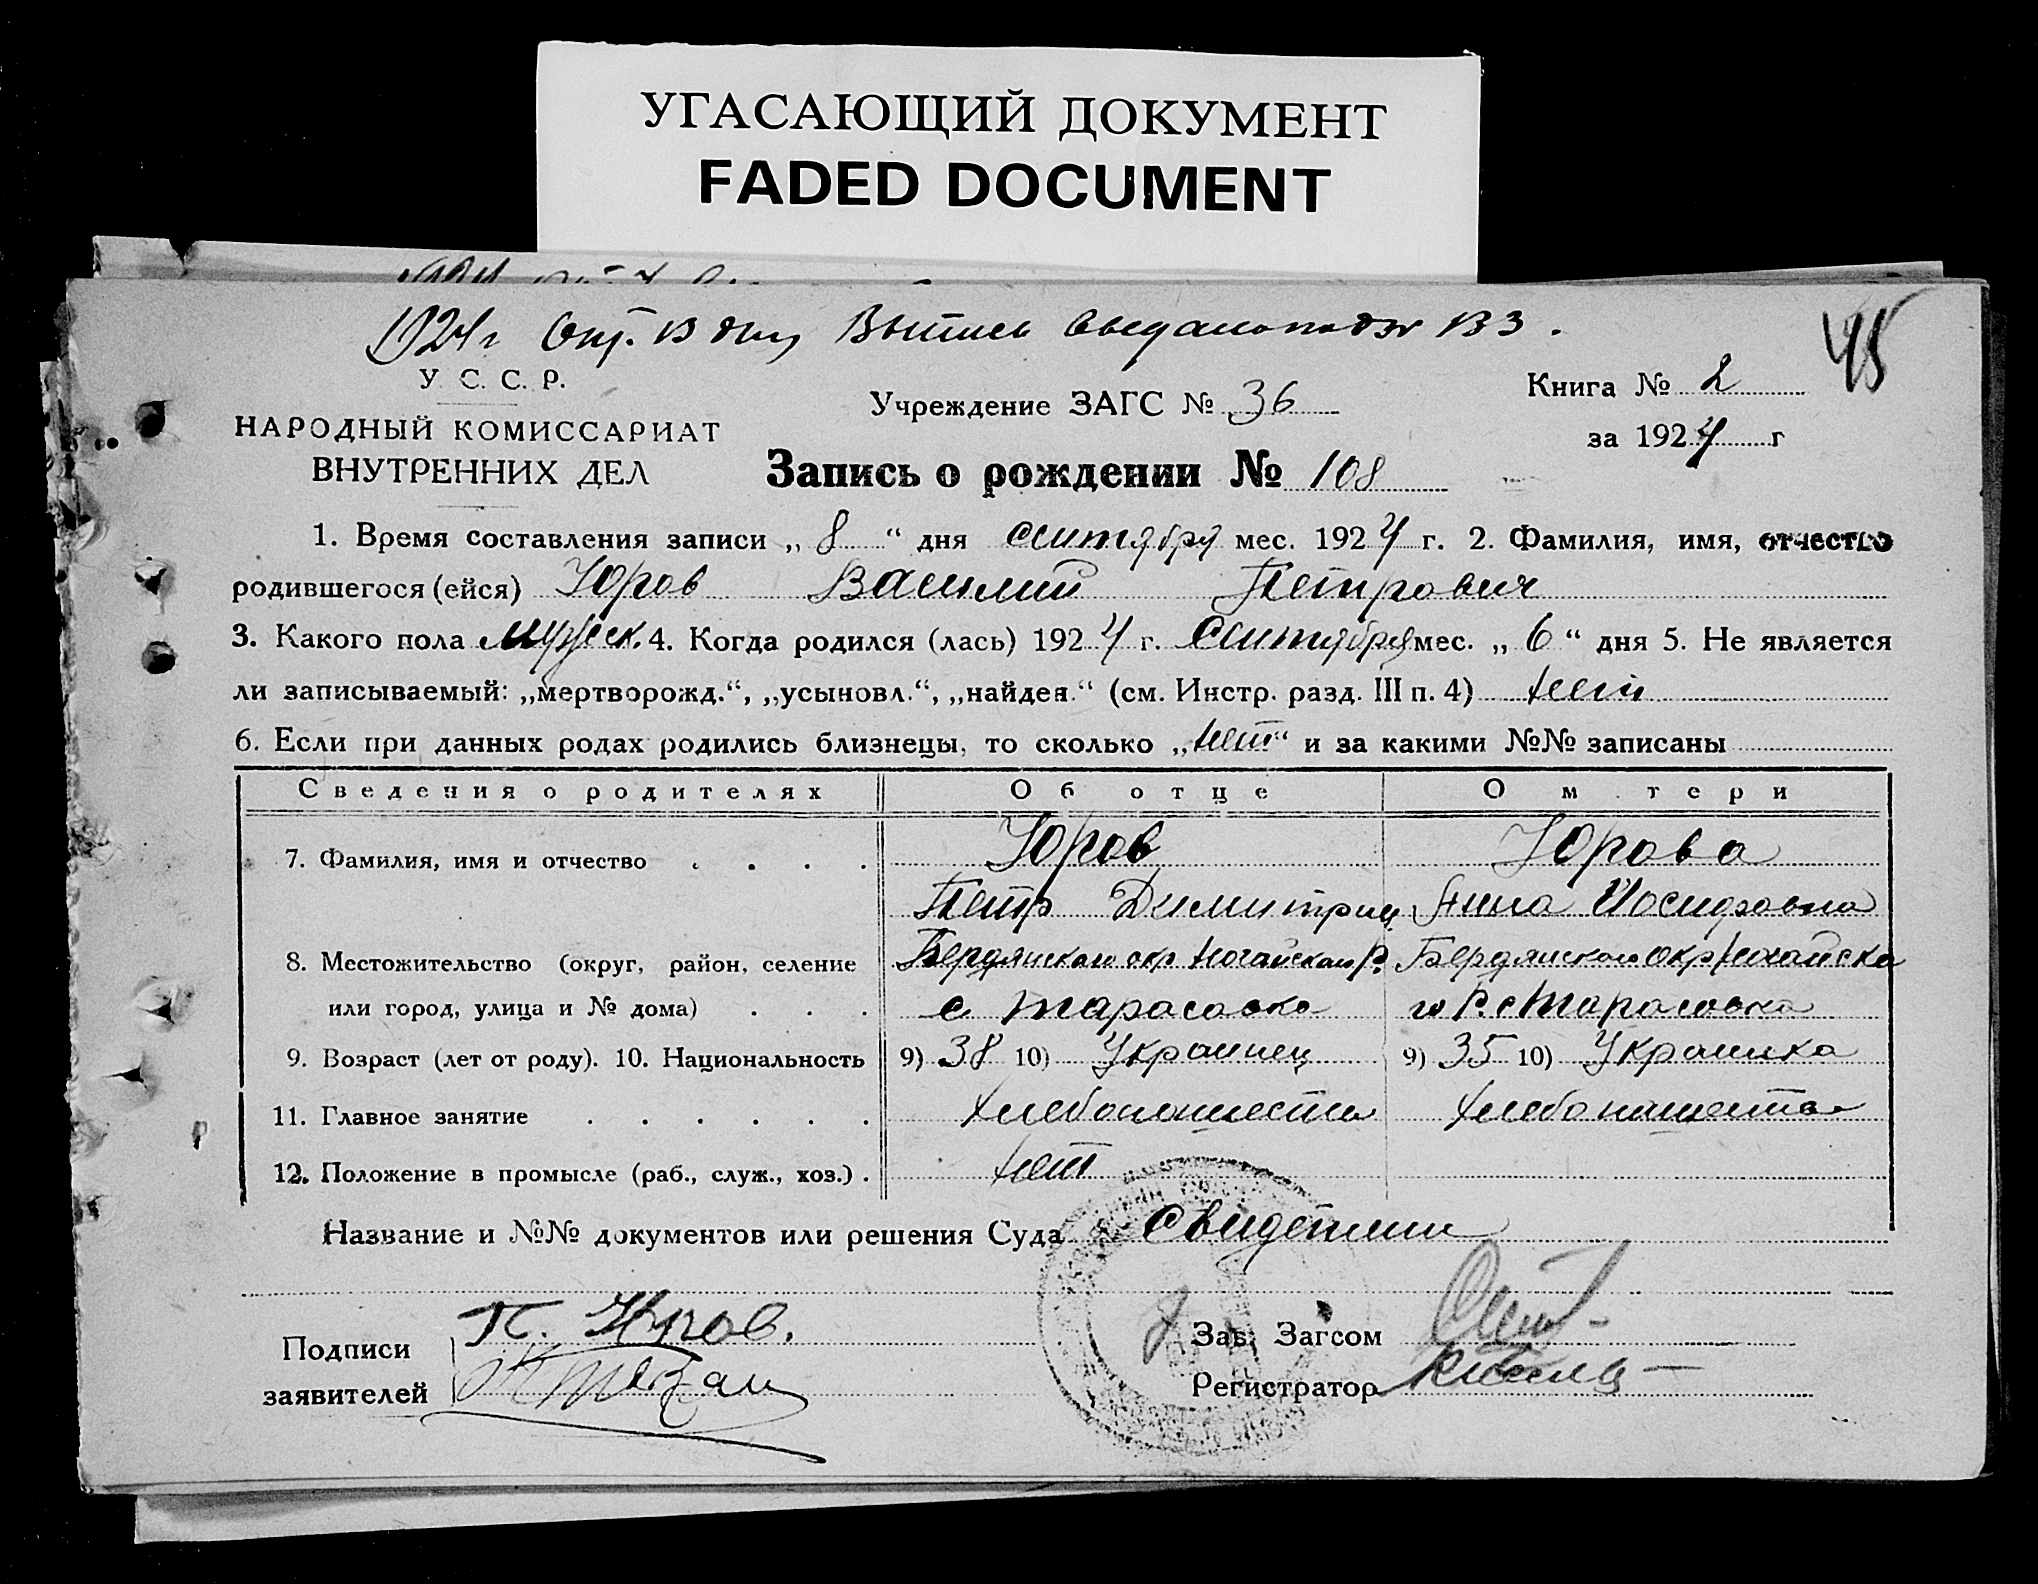 УГАСАЮЩИЙ ДОКУМЕНТ
FADED DOCUMENT
1924 г Окт. 13 дня Выпись за № 133.
45
У. С. С. Р.
НАРОДНЫЙ КОМИССАРИАТ
ВНУТРЕННИХ ДЕЛ
Учреждение ЗАГС № 36
Книга № 2
за 1924 г
Запись о рождении № 108
1. Время составления записи „ 8 “ дня сентября мес. 1924 г. 2. Фамилия, имя, отчество
родившегося (ейся) Юров Василий Петрович
3. Какого пола мужск. 4. Когда родился (лась) 1924 г. Сентября мес. „ 6 “ дня 5. Не является
ли записываемый: „мертворожд.“, „усыновл.“, „найден.“ (см. Инстр. разд. III п. 4) нет
6. Если при данных родах родились близнецы, то сколько „нет“ и за какими №№ записаны
Сведения о родителях Об отце О м тери
7. Фамилия, имя и отчество . . . . Юров Юрова
Петр Димитриев Анна Иосифовна
8. Местожительство (округ, район, селение Бердянского окр Ногайского Р. Бердянского окр Ногайско
или город, улица и № дома) . . . с Тарасовка го Р. с Тарасовка
9. Возраст (лет от роду). 10. Национальность 9) 38 10) Украинец 9) 35 10) Украинка
11. Главное занятие . . . . . . Хлебопашество Хлебопашество
12. Положение в промысле (раб., служ., хоз.) . нет
Название и №№ документов или решения Суда Свидетели
Подписи
заявителей
П. Юров.
Зав. Загсом
Регистратор